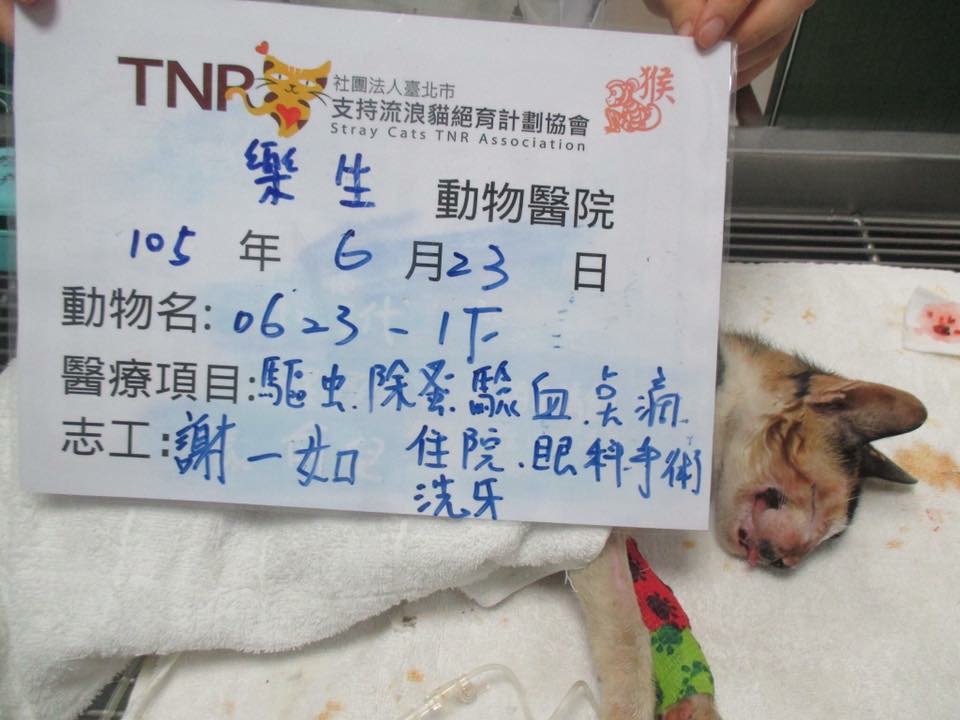 TNR 社團法人臺北市
支持流浪貓絕育計劃協會
Stray Cats TNR Association
猴
樂生 動物醫院
105 年 6 月 23 日
動物名: 0623-1下
醫療項目: 驅虫.除蚤.驗血.點滴.
志工: 謝一如 住院.眼科手術
洗牙